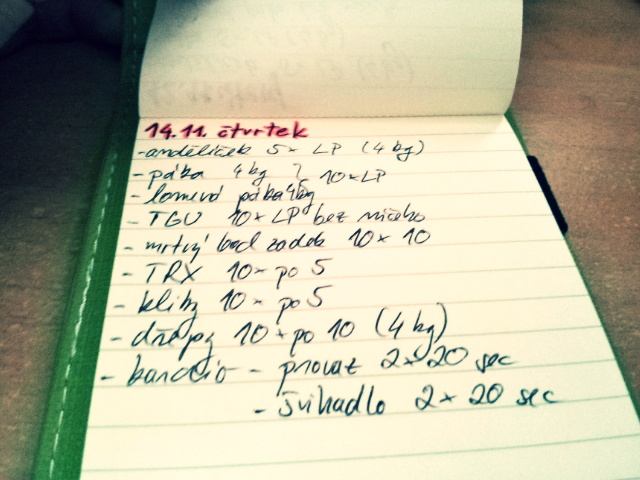 14.11. čtvrtek
- andělíček 5x LP (4 kg)
- páka 4 kg } 10x LP
- lomená páka 4kg
- TGU 10x LP bez ničeho
- mrtvý bod zadek 10x 10
- TRX 10x po 5
- kliky 10x po 5
- dřepy 10x po 10 (4 kg)
- - provaz 2x 20 sec
- švihadlo 2x 20 sec